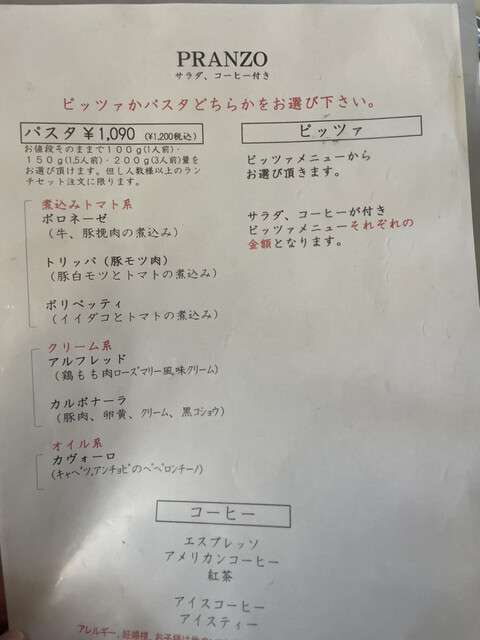 PRANZO
サラダ、コーヒー付き
ピッツァかパスタどちらかをお選び下さい。
パスタ ¥1,090 (¥1,200税込)
お値段そのままで100g(1人前)・
150g(1,5人前)・200g(3人前)量を
お選び頂けます。但し人数様以上のラン
チセット注文に限ります。
煮込みトマト系
ボロネーゼ
(牛、豚挽肉の煮込み)
トリッパ(豚モツ肉)
(豚白モツとトマトの煮込み)
ポリペッティ
(イイダコとトマトの煮込み)
クリーム系
アルフレッド
(鶏もも肉ローズマリー風味クリーム)
カルボナーラ
(豚肉、卵黄、クリーム、黒コショウ)
オイル系
カヴォーロ
(キャベツ,アンチョビのペペロンチーノ)
ピッツァ
ピッツァメニューから
お選び頂きます。
サラダ、コーヒーが付き
ピッツァメニューそれぞれの
金額となります。
コーヒー
エスプレッソ
アメリカンコーヒー
紅茶
アイスコーヒー
アイスティー
アレルギー、妊婦様、お子様